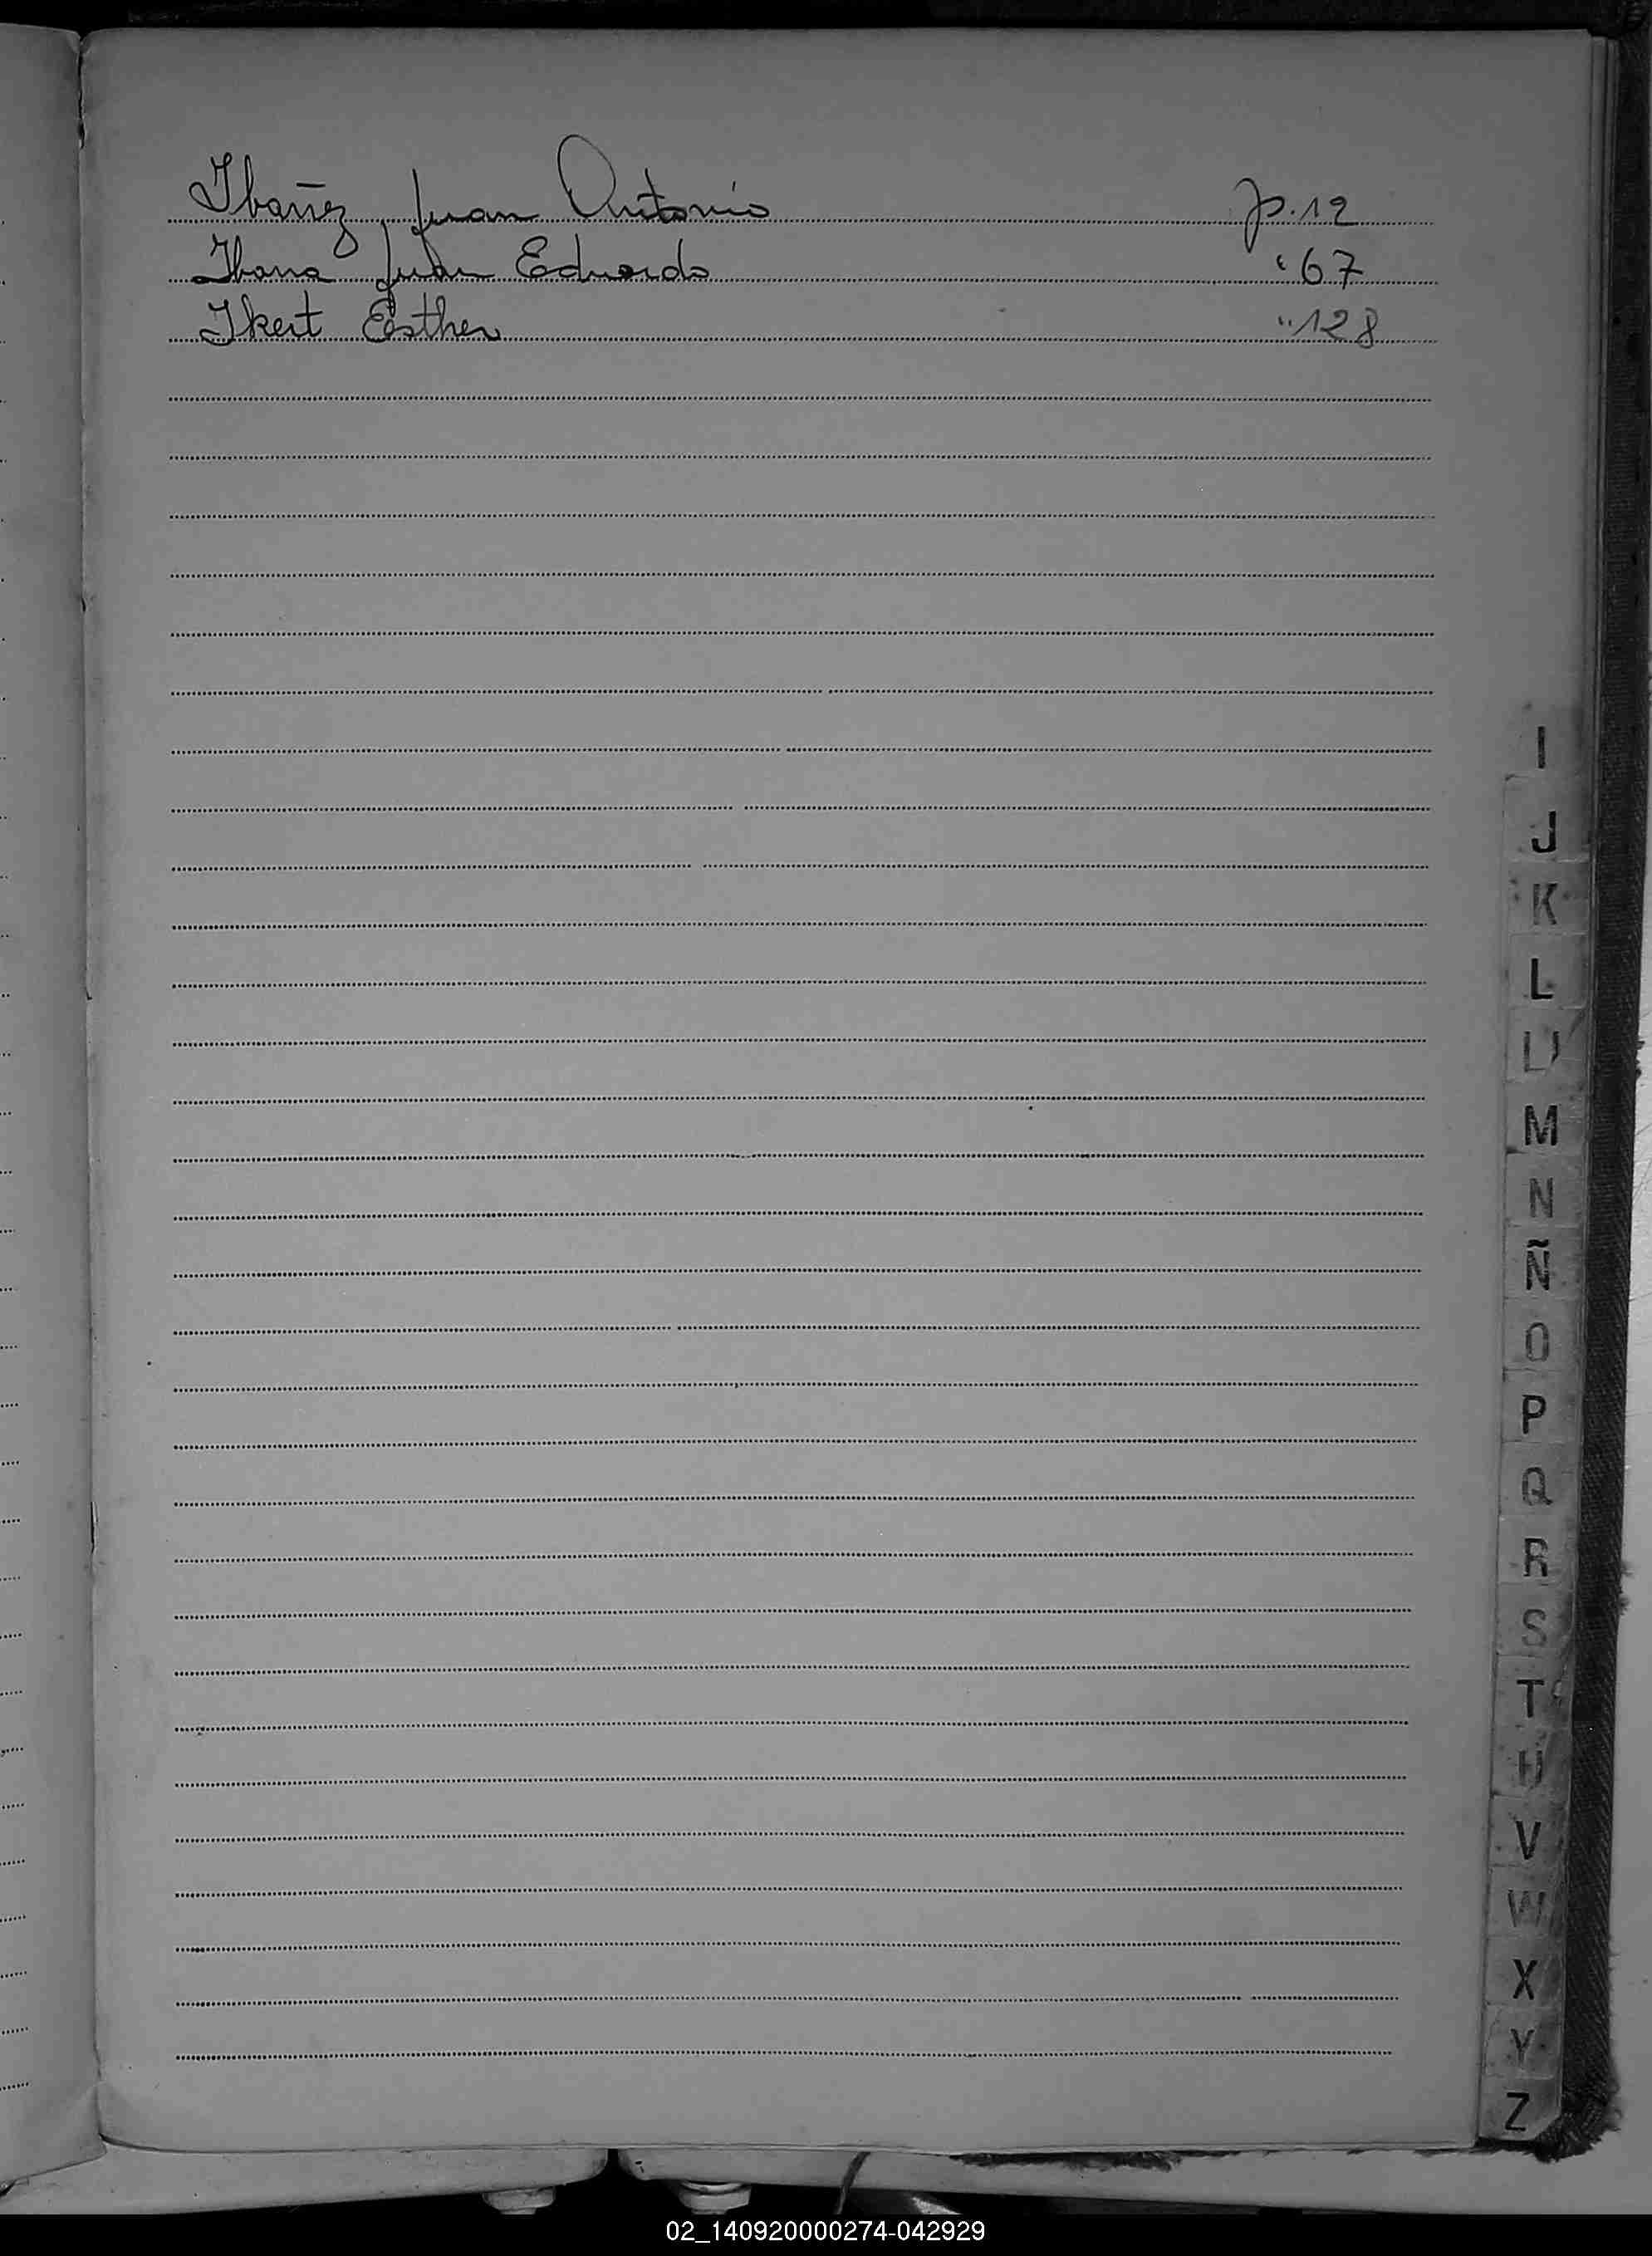 Ibañez, Juan Antonio p. 12
Ibana Juan Eduardo " 67
Ikert Esther " 128
I
J
K
L
M
N
Ñ
O
P
Q
R
S
T
U
V
W
X
Y
Z
02_140920000274-042929